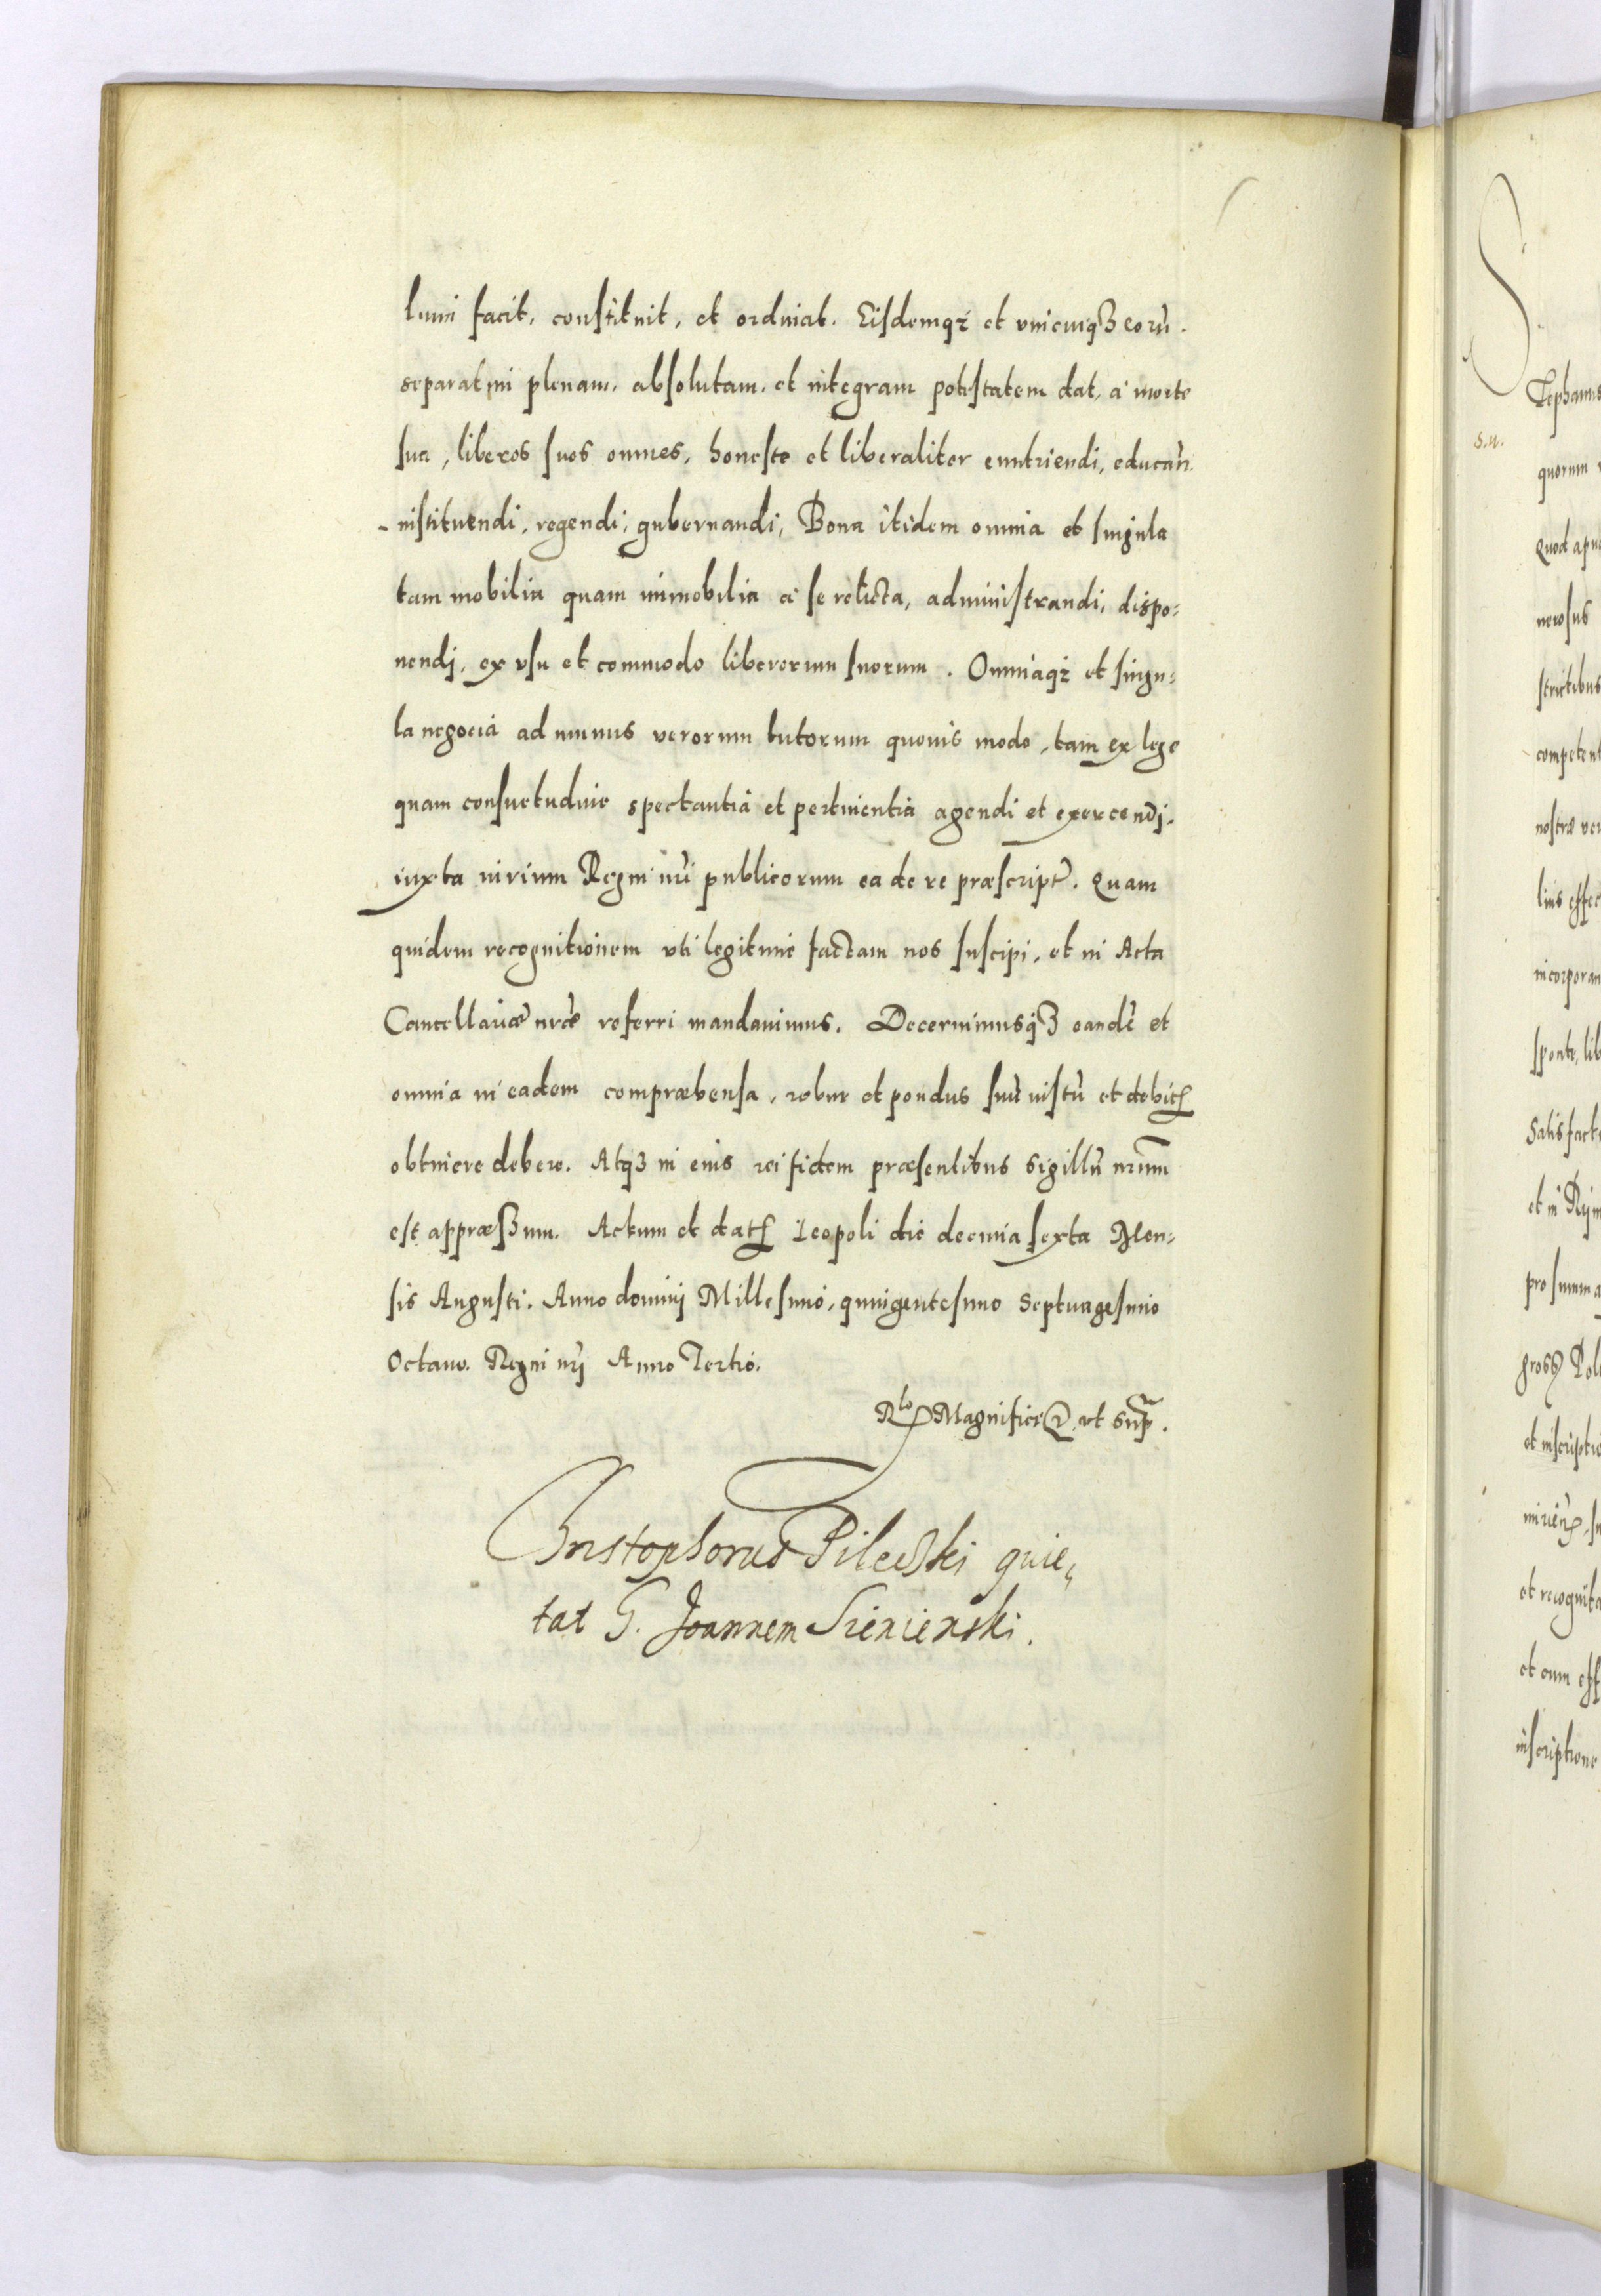 lumi facit, constituit, et ordinat. Eisdemq₃ et vnicuiq₃ eorũ.
separatim plenam, absolutam, et integram potestatem dat, à morte
sua, liberos suos omnes, honeste et liberaliter enutriendi, educan̄.
instituendi, regendi, gubernandi, Bona itidem omnia et singula
tam mobilia quam immobilia à se relicta, administrandi, dispo=
nendj, ex vsu et commodo liberorum suorum. Omniaq₃ et singu=
la negocia ad munus verorum tutorum quouis modo, tam ex lege
quam consuetudine spectantia et pertinentia agendi et exercendj.
iuxta iurium Regni nr̃i publicorum ea de re præscript̃. Quam
quidem recognitionem vti legitime factam nos suscipi, et in Acta
Cancellariæ nrẽ referri mandauimus. Decernimusq₃ eandẽ et
omnia in eadem compræhensa, robur et pondus suũ iustũ et debitꝭ
obtinere debere. Atq₃ in eius rei fidem præsentibus Sigillũ nr̃um
est appræssum. Actum et datꝭ Leopoli die decima sexta Men=
sis Augusti. Anno dominj Millesimo, quingentesimo Septuagesimo
Octauo. Regni nrj Anno Tertio.
Rlo Magnifici ut supra.
Christophorus Pilecski quie=
tat G. Joannem Sienienski.
S
Tephanus
S. N.
quorum
Quod apu
nerosus
strictibus
competent
nostræ ver
lius effec
incorporan
sponte, lib
Satisfact
et in Rij
pro summa
gross Pol
et inscriptio
et recognita
et cum eff
inscriptione